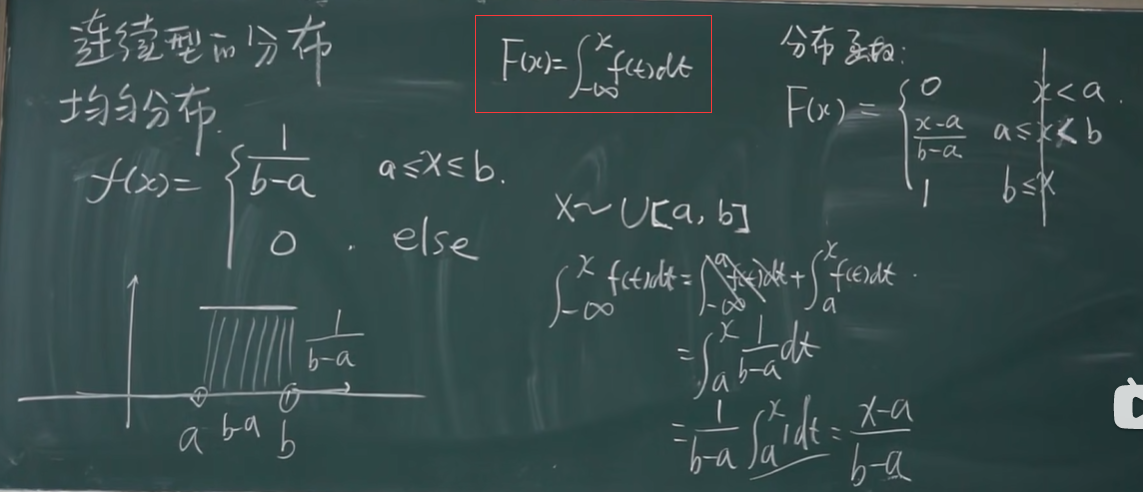 连续型的分布
均匀分布.
f(x)= { 1/(b-a) a≤x≤b.
0 . else
1/(b-a)
a b-a b
F(x)=∫_{-∞}^{x} f(t)dt
X~U[a,b]
∫_{-∞}^{x} f(t)dt=∫_{-∞}^{a} f(t)dt+∫_{a}^{x} f(t)dt.
=∫_{a}^{x} 1/(b-a) dt
=1/(b-a) ∫_{a}^{x} 1dt=(x-a)/(b-a)
分布函数:
F(x)= { 0 x<a.
(x-a)/(b-a) a≤x<b
1 b≤x